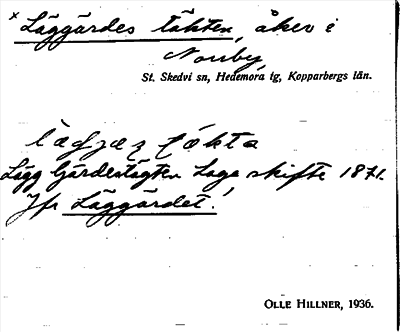 × Läggärdes täkten, åker i
Norrby,
St. Skedvi sn, Hedemora tg, Kopparbergs län.
Lägg Gärdestägten Laga skifte 1871.
Jfr Läggärdet!
OLLE HILLNER, 1936.